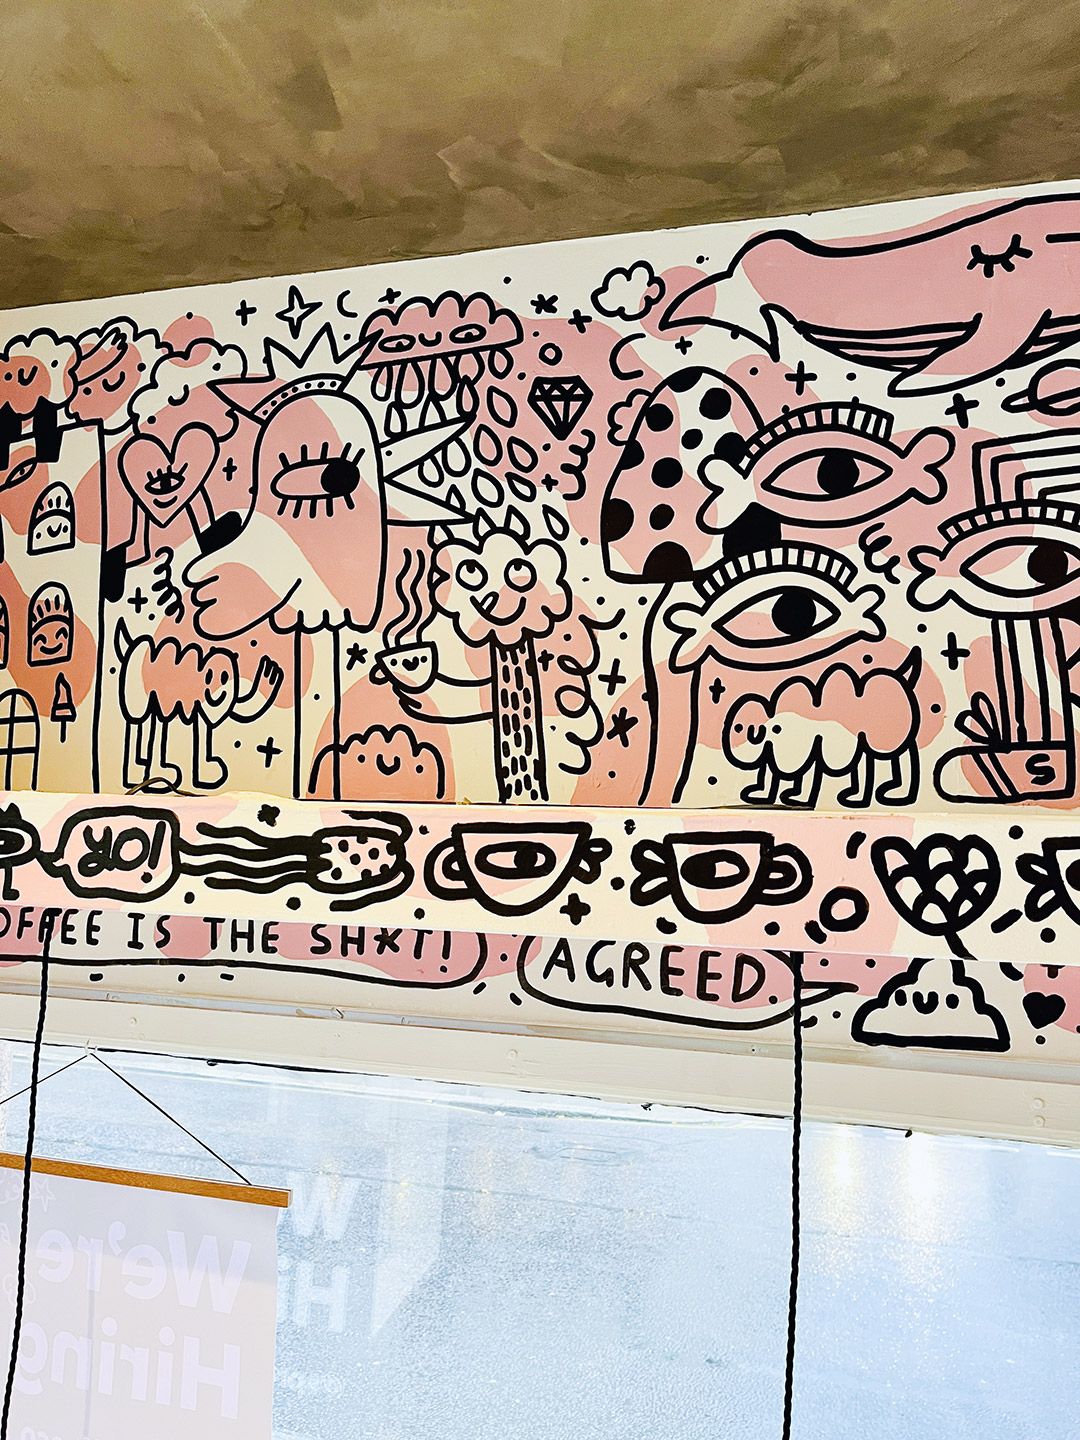 S
YO!
OFFEE IS THE SH*T!
AGREED.
We're
Hiring
We
Hi